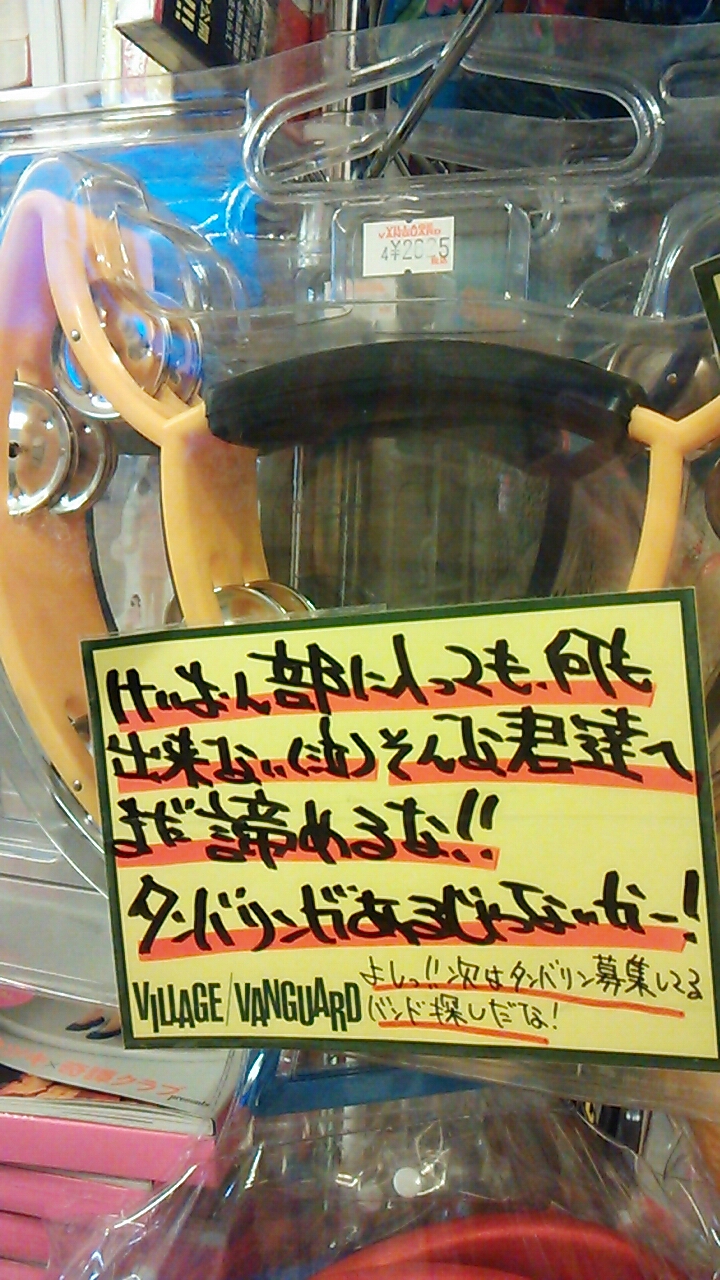 VILLAGE
VANGUARD
けいおん部に入っても、何も
出来ない(泣)そんな君達へ
まだ諦めるな!!
タンバリンがあるじゃないかー!
VILLAGE/VANGUARD
よしっ!!次はタンバリン募集してる
バンド探しだな!